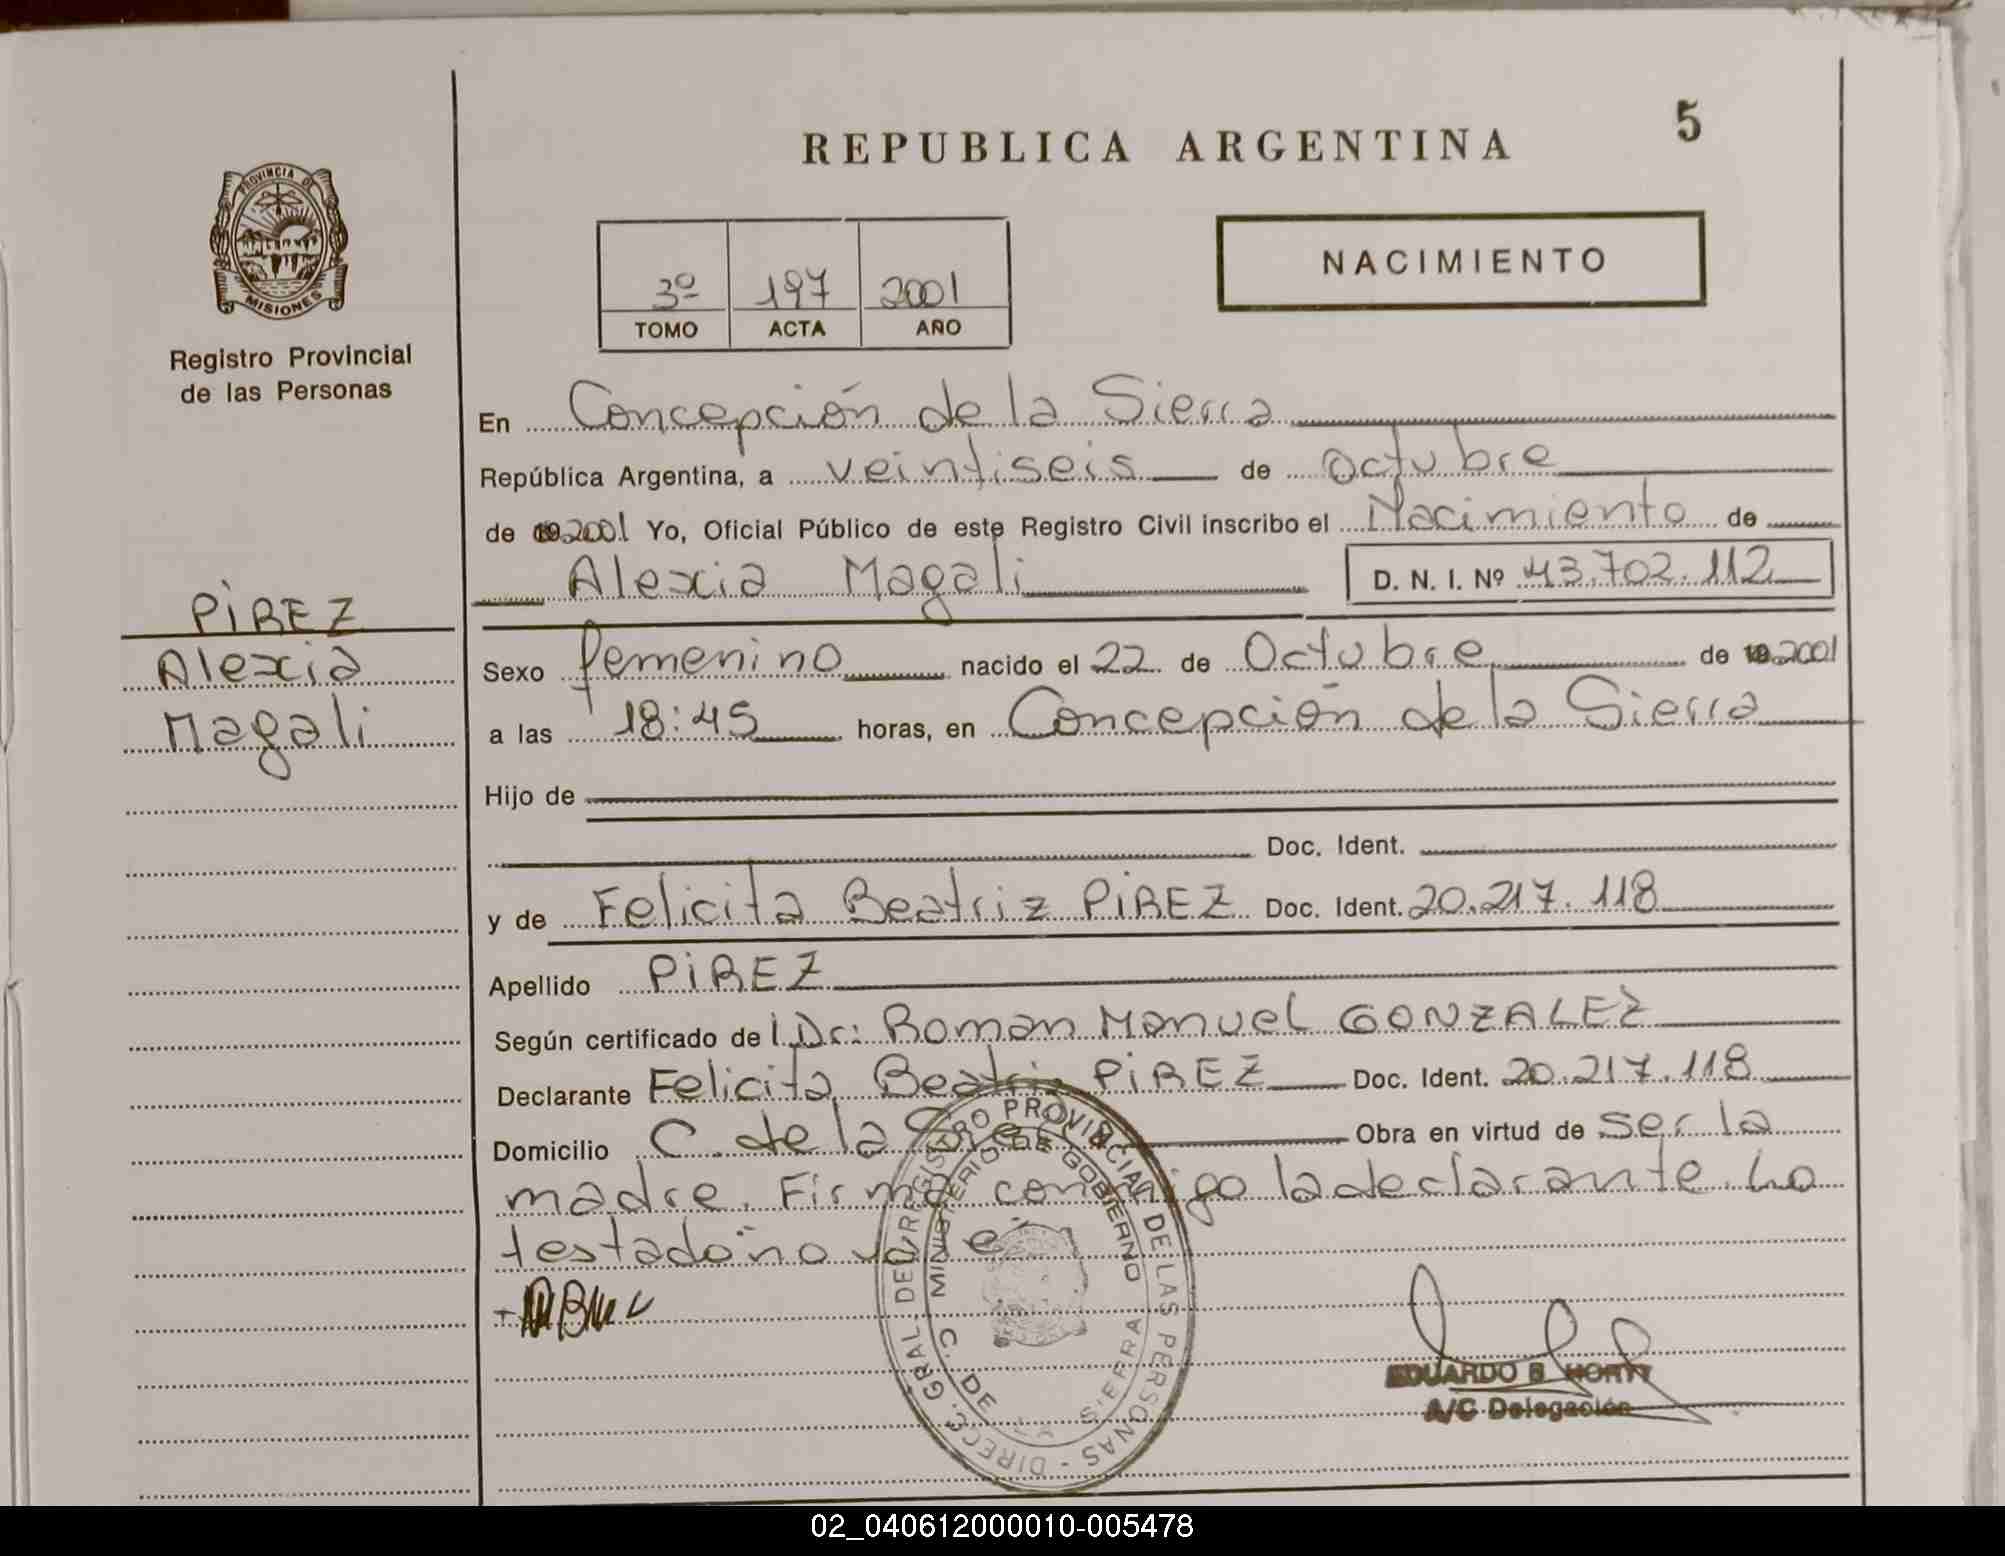 5
REPUBLICA ARGENTINA
PROVINCIA DE
MISIONES
Registro Provincial
de las Personas
NACIMIENTO
3º 197 2001
TOMO ACTA AÑO
En Concepción de la Sierra
República Argentina, a veintiseis de octubre
de 2001 Yo, Oficial Público de este Registro Civil inscribo el Nacimiento de
Alexia Magali D. N. I. Nº 43.702.112
PIREZ
Alexia
Magali
Sexo femenino nacido el 22 de Octubre de 2001
a las 18:45 horas, en Concepción de la Sierra
Hijo de
Doc. Ident.
y de Felicita Beatriz PIREZ Doc. Ident. 20.217.118
Apellido PIREZ
Según certificado de l Dr: Roman Manuel GONZALEZ
Declarante Felicita Beatriz PIREZ Doc. Ident. 20.217.118
Domicilio C. de la Obra en virtud de ser la
madre. Firma conmigo la declarante. Lo
testado no
DIRECC. GRAL. DEL REGISTRO PROVINCIAL DE LAS PERSONAS
MINISTERIO DE GOBIERNO
C. DE SIERRA
EDUARDO B. HORTT
A/C Delegación
02_040612000010-005478